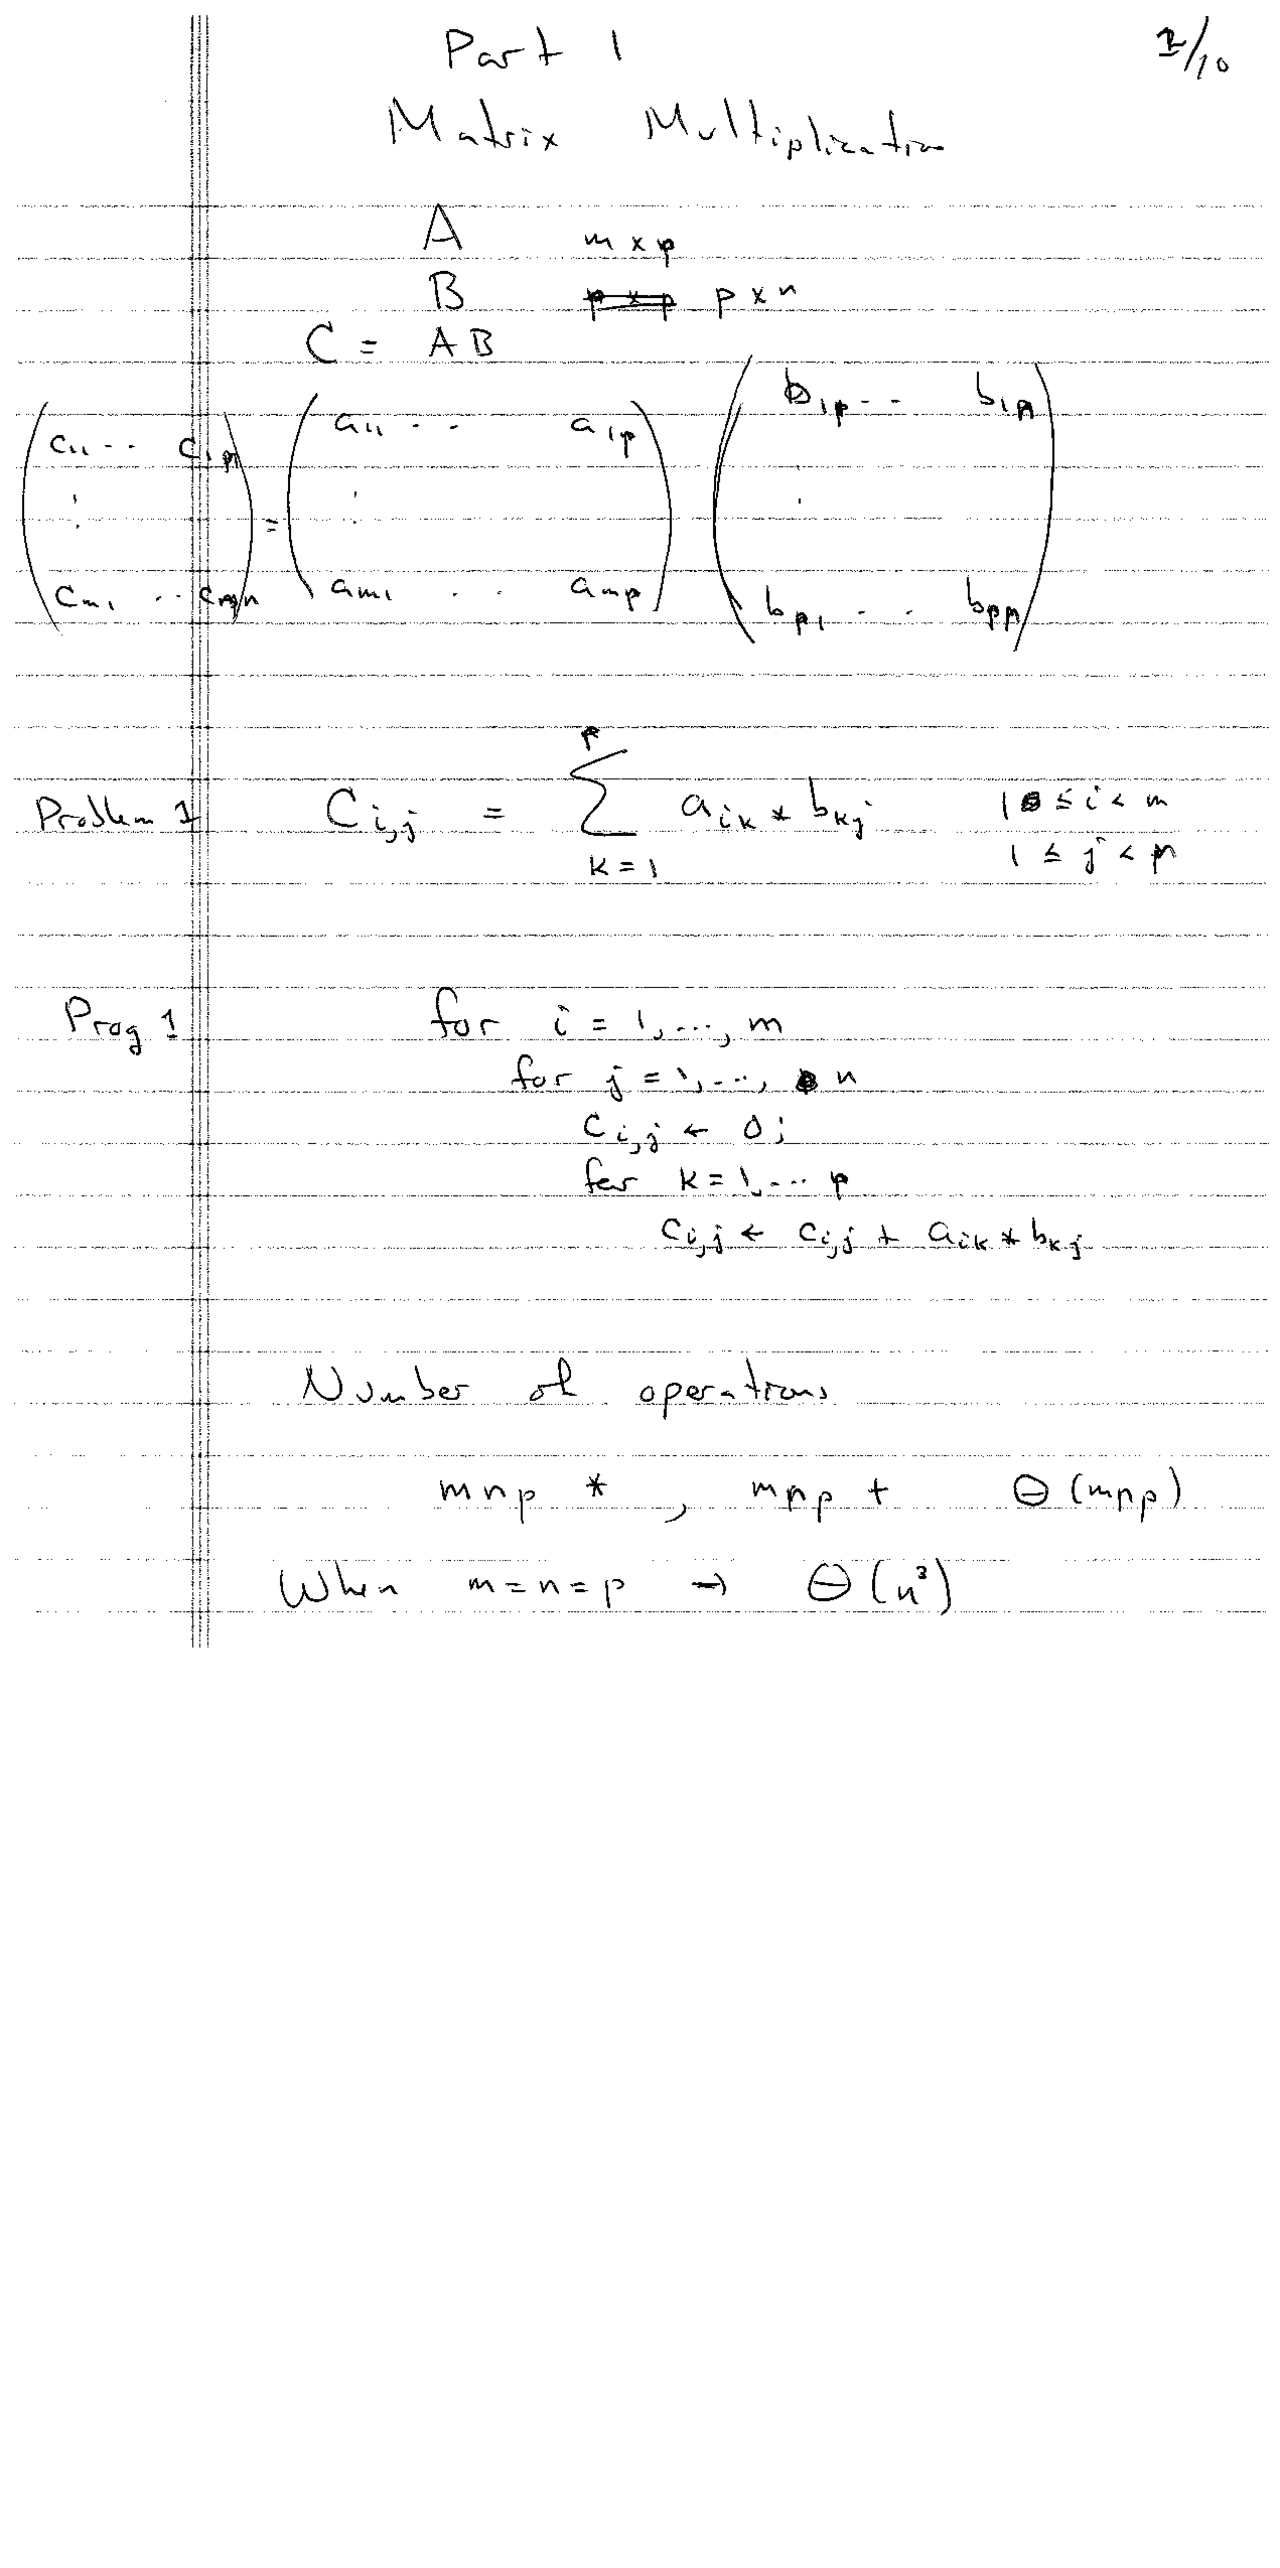 Part 1
1/10
Matrix Multiplication
A m × p
B p × n
C = A B
( c11 ·· c1n ⋮ cm1 ·· cmn ) = ( a11 ·· a1p ⋮ am1 ·· amp ) ( b1p ·· b1n ⋮ bp1 ·· bpn )
Problem 1 Ci,j = Σ k=1 p aik * bkj 1 ≤ i < m
1 ≤ j < n
Prog 1 for i = 1, ..., m
for j = 1, ..., n
ci,j ← 0;
for k = 1, ... p
ci,j ← ci,j + aik * bkj
Number of operations
mnp * , mnp + Θ (mnp)
When m = n = p → Θ (n³)